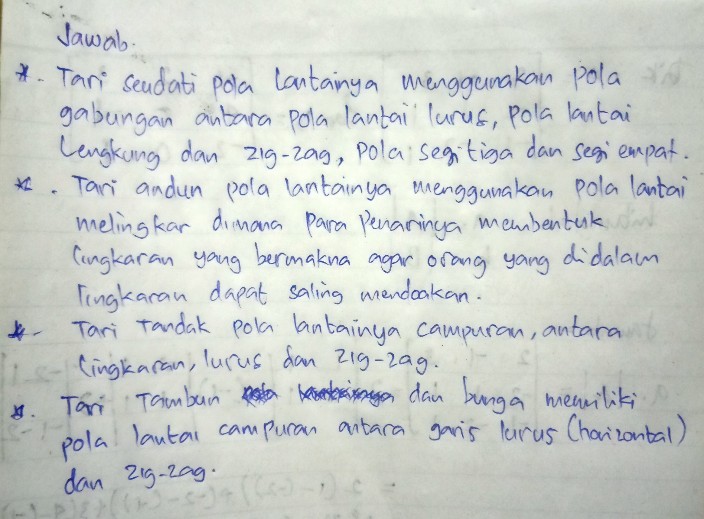 Jawab.
*. Tari seudati pola lantainya menggunakan pola
gabungan antara pola lantai lurus, pola lantai
Lengkung dan zig-zag, pola segitiga dan segi empat.
*. Tari andun pola lantainya menggunakan pola lantai
melingkar dimana para penarinya membentuk
lingkaran yang bermakna agar orang yang didalam
lingkaran dapat saling mendoakan.
*. Tari Tandak pola lantainya campuran, antara
lingkaran, lurus dan zig-zag.
*. Tari Tambun dan bunga memiliki
pola lantai campuran antara garis lurus (horizontal)
dan zig-zag.